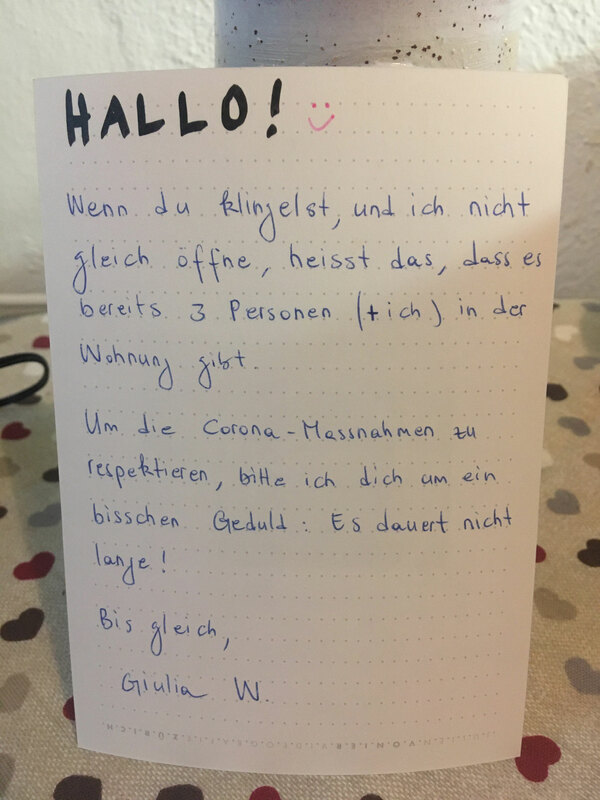 HALLO!
Wenn du klingelst, und ich nicht
gleich öffne, heisst das, dass es
bereits 3 Personen (+ich) in der
Wohnung gibt.
Um die Corona-Massnahmen zu
respektieren, bitte ich dich um ein
bisschen Geduld: Es dauert nicht
lange!
Bis gleich,
Giulia W.